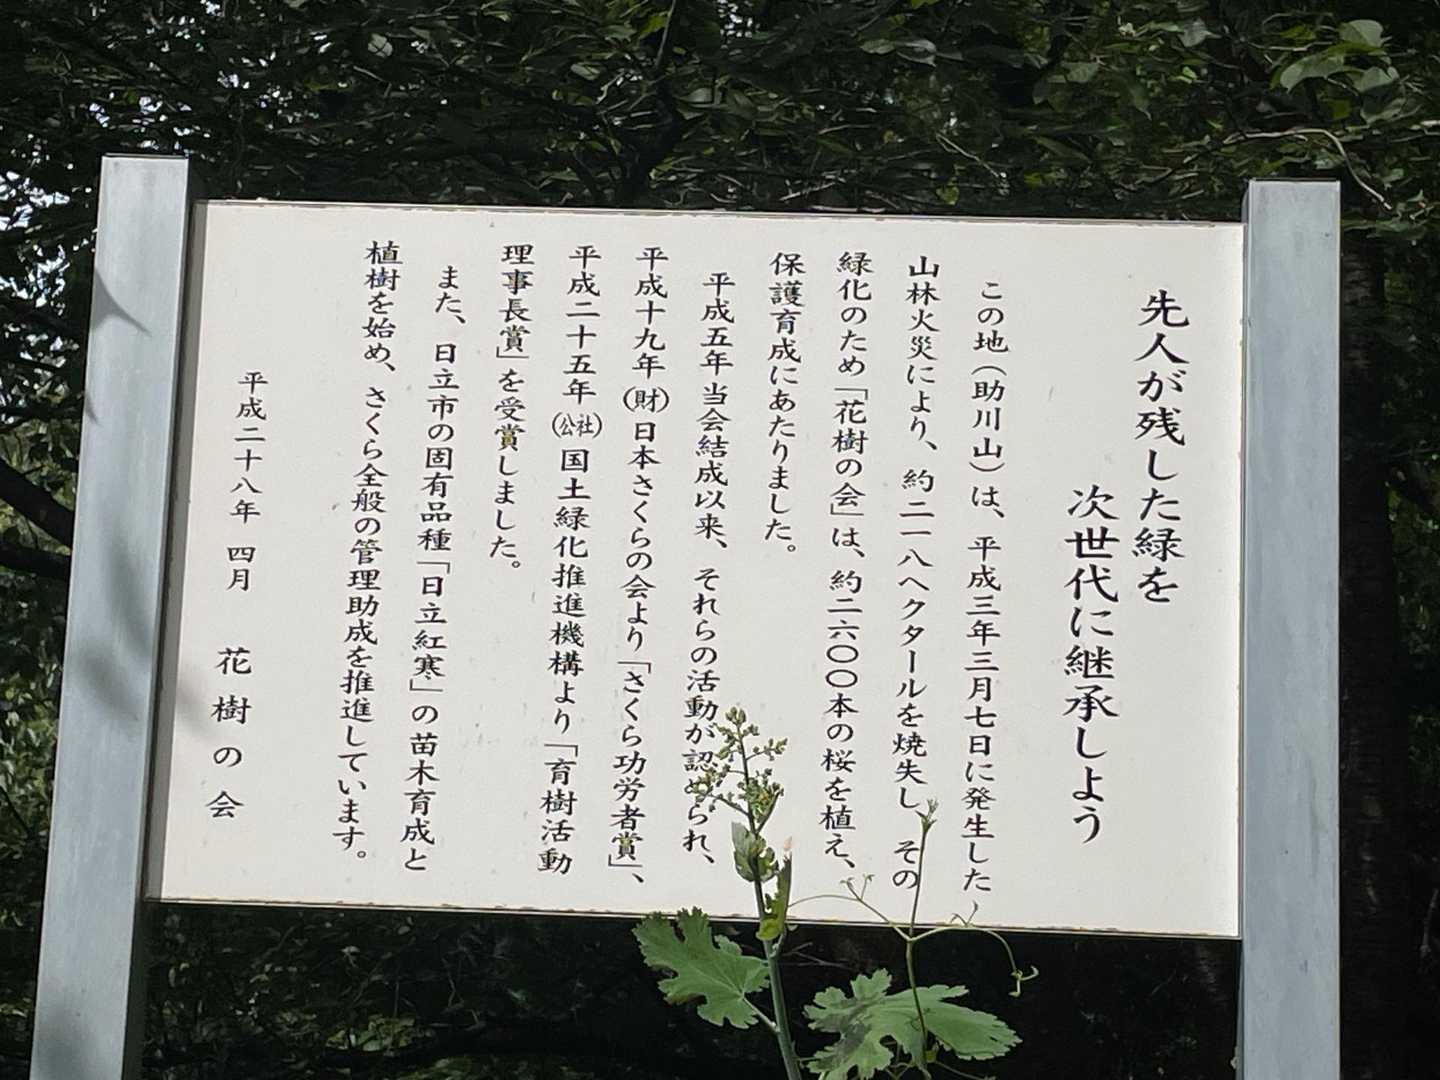 先人が残した緑を
次世代に継承しよう
この地（助川山）は、平成三年三月七日に発生した
山林火災により、約二一八ヘクタールを焼失し、その
緑化のため「花樹の会」は、約二六〇〇本の桜を植え、
保護育成にあたりました。
平成五年当会結成以来、それらの活動が認められ、
平成十九年㈶日本さくらの会より「さくら功労者賞」、
平成二十五年(公社)国土緑化推進機構より「育樹活動
理事長賞」を受賞しました。
また、日立市の固有品種「日立紅寒」の苗木育成と
植樹を始め、さくら全般の管理助成を推進しています。
平成二十八年 四月 花樹の会